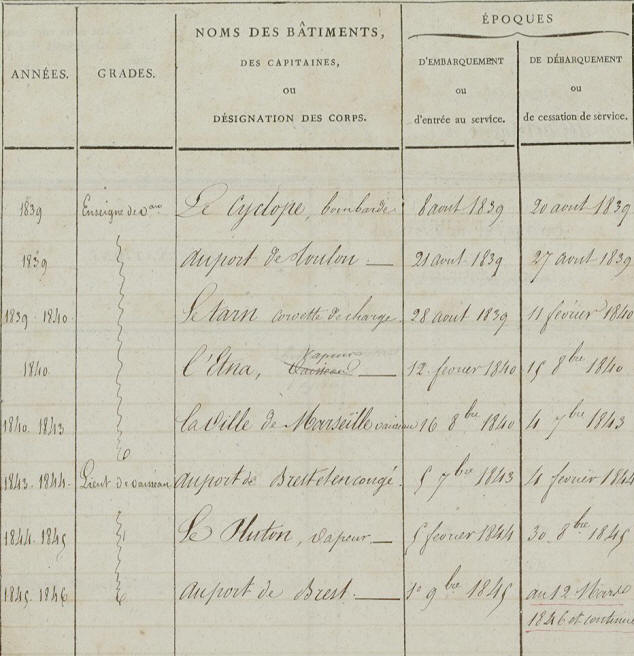 ÉPOQUES
ANNÉES. GRADES. NOMS DES BÂTIMENTS, DES CAPITAINES, ou DÉSIGNATION DES CORPS. D'EMBARQUEMENT ou d'entrée au service. DE DÉBARQUEMENT ou de cessation de service.
1839 Enseigne de vau Le Cyclope, bombarde 8 aout 1839 20 aout 1839
1839 au port de Toulon. 21 aout 1839 27 aout 1839
1839. 1840. Le Tarn corvette de charge. 28 aout 1839 11 fevrier 1840
1840. l'Etna, Vaisseau vapeur 12 fevrier 1840 15 8bre 1840
1840. 1843 la Ville de Marseille vaisseau 16 8bre 1840 4 7bre 1843
1843. 1844. Lieut de vaisseau au port de Brest et en congé. 5 7bre 1843 4 fevrier 1844
1844. 1845 Le Pluton, vapeur 5 fevrier 1844 30 8bre 1845
1845. 1846 au port de Brest. 1er 9bre 1845 au 12
1846 et continue